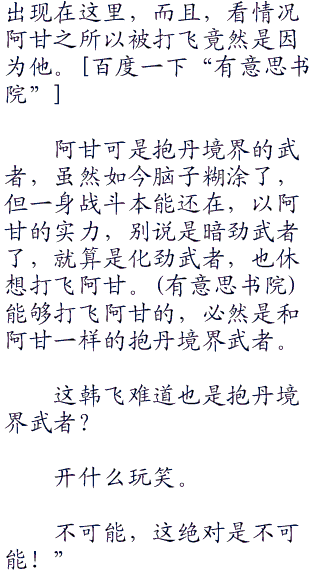 出现在这里，而且，看情况
阿甘之所以被打飞竟然是因
为他。[百度一下“有意思书
院”]
阿甘可是抱丹境界的武
者，虽然如今脑子糊涂了，
但一身战斗本能还在，以阿
甘的实力，别说是暗劲武者
了，就算是化劲武者，也休
想打飞阿甘。(有意思书院)
能够打飞阿甘的，必然是和
阿甘一样的抱丹境界武者。
这韩飞难道也是抱丹境
界武者？
开什么玩笑。
不可能，这绝对是不可
能！”